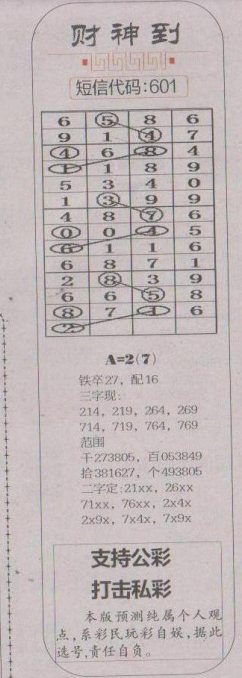 财神到
短信代码:601
6 5 8 6
9 1 4 7
4 6 8 4
1 1 8 9
5 3 4 0
1 3 9 9
4 8 7 6
0 0 4 5
6 1 1 6
6 8 7 1
2 8 3 9
6 6 5 8
8 7 1 6
2
A=2(7)
铁卒27，配16
三字现:
214，219，264，269
714，719，764，769
范围
千273805，百053849
拾381627，个493805
二字定:21xx，26xx
71xx，76xx，2x4x
2x9x，7x4x，7x9x
支持公彩
打击私彩
本版预测纯属个人观
点,系彩民玩彩自娱,据此
选号,责任自负。